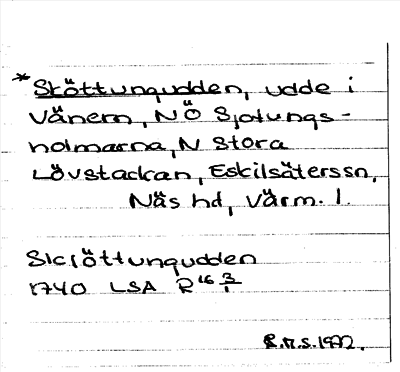 *Sköttungudden, udde i
Vänern, NÖ Sjötungs-
holmarna, N Stora
Lövstackan, Eskilsäterssn,
Näs hd, Värm. l.
Skiöttungudden
1740 LSA R 16 3/1
R.n.S. 1972.